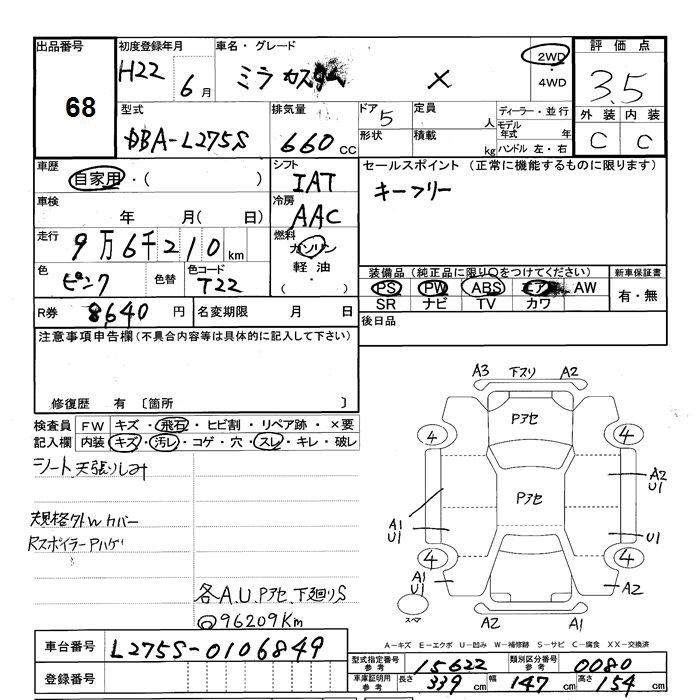 出品番号
68
初度登録年月
H22 6月
車名・グレード
ミラカスタム X
2WD
・
4WD
評価点
3.5
外装 内装
C C
型式
DBA-L275S
排気量
660 CC
ドア 5
形状
定員 人
積載 kg
ディーラー・並行
モデル年式 年
ハンドル 左・右
車歴
自家用・( )
シフト
IAT
セールスポイント(正常に機能するものに限ります)
キーフリー
車検
年 月( 日)
冷房
AAC
走行
9万6千210km
燃料
ガソリン
軽油
・
( )
色
ピンク
色替
色コード
T22
装備品(純正品に限り○をつけてください)
PS PW ABS エア AW
SR ナビ TV カワ
新車保証書
有・無
R券 8640 円
名変期限 月 日
後日品
注意事項申告欄(不具合内容等は具体的に記入して下さい)
修復歴 有 〔箇所 〕
検査員 FW キズ・飛石・ヒビ割・リペア跡・×要
記入欄 内装 キズ・汚レ・コゲ・穴・スレ・キレ・破レ
シート、天張りしみ
規格外Wカバー
RスポイラーPハゲ
各A.U.Pアセ、下廻りS
@96209Km
A3 下スリ A2
Pアセ
4 4
Pアセ
A2
U1
A1
U1
U1
4 4
A1
U1
A2
スペア
A2 A1
車台番号 L275S-0106849
登録番号
A-キズ E-エクボ U-凹み W-補修跡 S-サビ C-腐食 XX-交換済
型式指定番号
参考
15622
類別区分番号
参考
0080
車庫証明用
参考
長さ 339 cm 幅 147 cm 高さ 154 cm